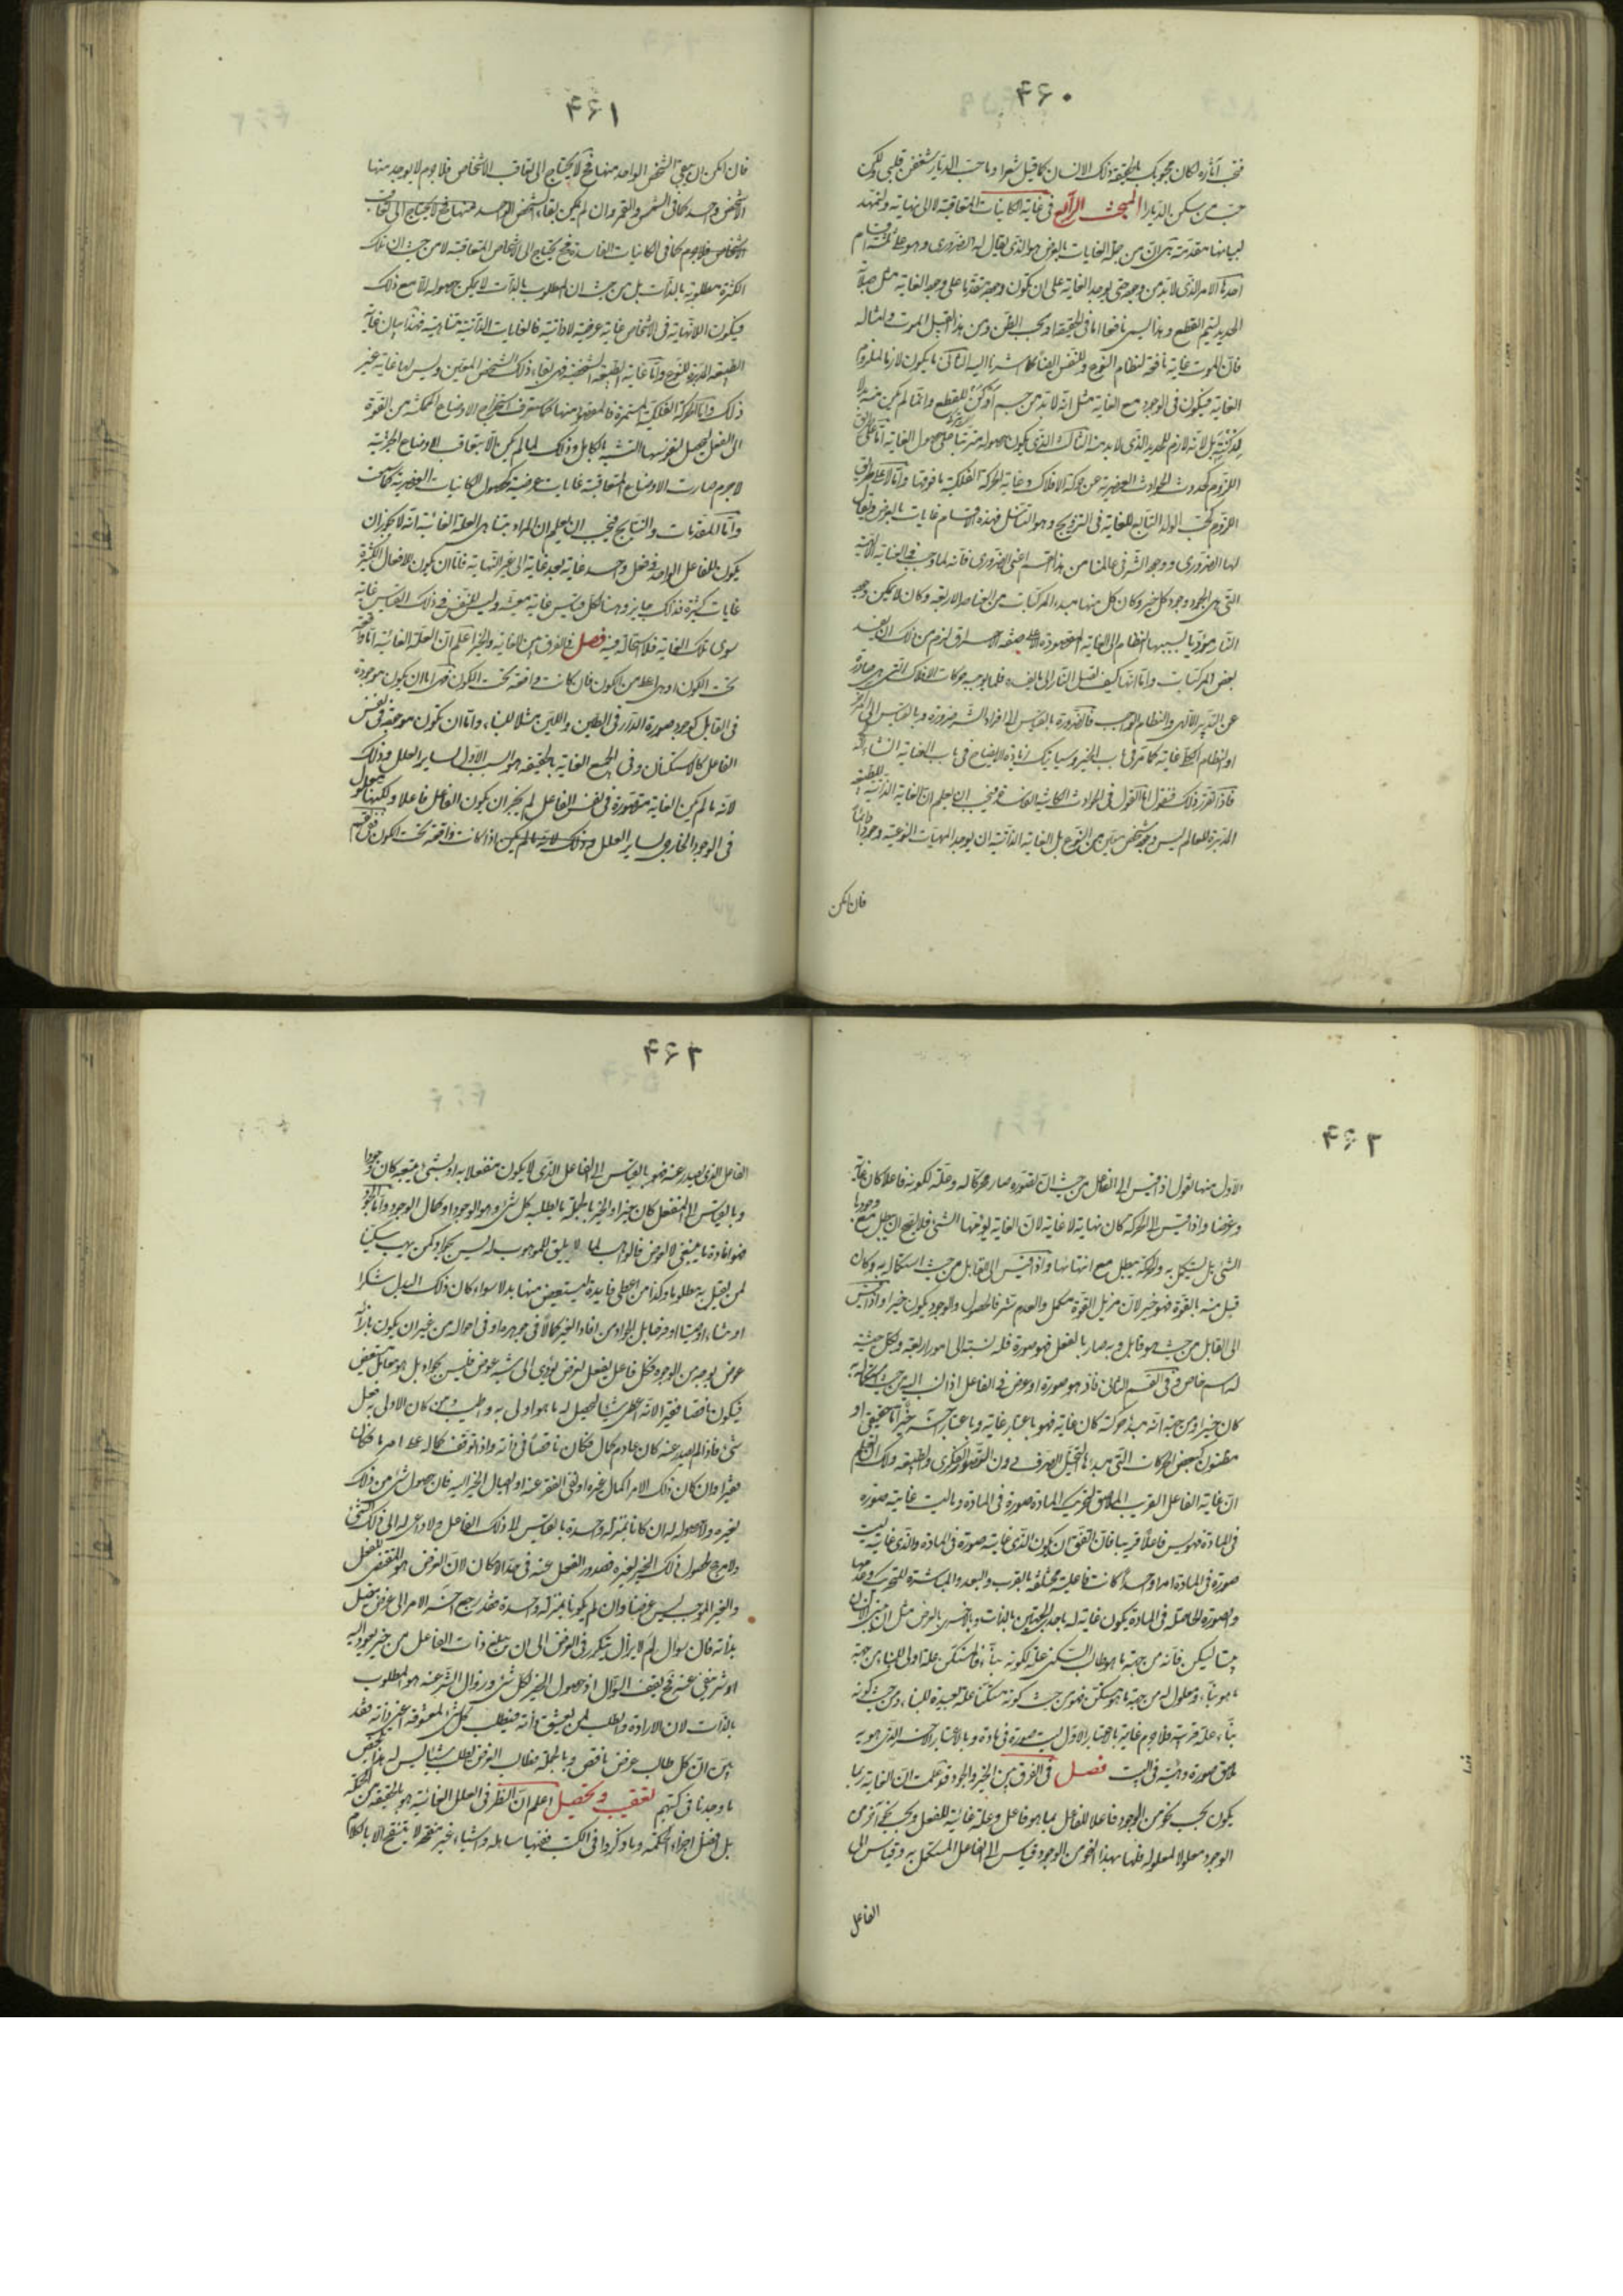 ۴۶۰
فيحب آثاره لكان محبوبك بالحقيقة ذلك الانسان كما قيل شعر وما حب الديار شغفن قلبي ولكن
حب من سكن الديارا المبحث الرابع في غاية الكائنات المتعاقبة لا الى نهاية ولنمهد
لبيانها مقدمة هي ان من جملة الغايات بالعرض هو الذي يقال له الضروري وهو على ثلثة اقسام
احدها الامر الذي لا بد من وجوده حتى يوجد الغاية على ان يكون وجوده متقدما على وجود الغاية مثل صلابة
الحديد ليتم القطع وهذا يسمى نافعا اما في الحقيقة او بحسب الظن ومن هذا القبيل الموت وامثاله
فان الموت غاية نافعة لنظام النوع وللنفس ايضا كما اشرنا اليه الثاني ما يكون لازما لملزوم
الغاية فيكون في الوجود مع الغاية مثل انه لا بد من جسم ادكن للقطع وانما لم يكن منه بد لا
لدكنته بل لانه لازم للحديد الذي لا بد منه الثالث الذي يكون حصوله مترتبا على حصول الغاية اما على طريق
اللزوم كحدوث الحوادث العنصرية عن حركة الافلاك وغاية الحركة الفلكية ما فوقها واما لا على طريق
اللزوم كحب الولد التابع للغاية في التزويج وهو التناسل فهذه اقسام غايات بالعرض ويقال
لها الضروري ووجود الشر في عالمنا من هذا القسم اعنى الضروري فانه لما وجب في العناية الالهية
التي هي الجود وجود كل خير وكان كل منها مبدء المركبات من العناصر الاربعة وكان لا يمكن وجود
النار مؤديا بسببها النظام الى الغاية المقصودة الا على صفة الاحراق لزم من ذلك ان يفسد
بعض المركبات واما انها كيف تصل النار الى ما يفسده فلما يوجبه حركات الافلاك التي هي صادرة
عن التدبير الالهي والنظام الواجب فالضرورة بالقياس الى افراد الشر ضرورة وبالقياس الى
او النظام الكلي غاية كما مر في باب الخير وسيأتيك زيادة الايضاح في باب العناية انشاء الله
فاذا تقرر ذلك فنقول اما القول في الحوادث الكائنة الفاسدة فيجب ان يعلم ان الغاية الذاتية للطبيعة
المدبرة للعالم ليس وجود شخص معين من النوع بل الغاية الذاتية ان يوجد المهيات النوعية وجودا دائما
فان امكن
۴۶۱
فان امكن ان يبقى الشخص الواحد منها فح لا يحتاج الى تعاقب الاشخاص فلا جرم لا يوجد منها
الا شخص واحد كما في الشمس والقمر وان لم يكن بقاء الشخص الواحد منها فح لا يحتاج الى تعاقب
الاشخاص فلا جرم كما في الكائنات الفاسدة فح يحتاج الى الاشخاص المتعاقبة لا من حيث ان تلك
الكثرة مطلوبة بالذات بل من حيث ان المطلوب بالذات لا يمكن حصوله الا مع ذلك
فيكون اللانهاية في الاشخاص غاية عرضية لا ذاتية فالغايات الذاتية متناهية فهذا بيان غاية
الطبيعة المدبرة للنوع واما غاية الطبيعة الشخصية فهي بقاء ذلك الشخص المعين وليس لها غاية غير
ذلك واما الحركة الفلكية المستمرة فالمقصود منها كما ستعرف استخراج الاوضاع الممكنة من القوة
الى الفعل ليحصل لنفوسها التشبه بالكامل وذلك لما لم يكن الا بتعاقب الاوضاع الجزئية
لا جرم صارت الاوضاع المتعاقبة غايات عرضية كحصول الكائنات العنصرية كما مر
واما المقدمات والنتايج فيجب ان يعلم ان المراد بتناهي العلة الغائية انه لا يجوز ان
يكون للفاعل الواحد في فعل واحد غاية بعد غاية الى غير النهاية فاما ان يكون للافعال الكثيرة
غايات كثيرة فذلك جايز وهنا لكل قياس غاية معينة وليس للنفس في ذلك القياس غاية
سوى تلك الغاية فلا استحالة فيه فصل في الفرق بين الغاية والخير اعلم ان العلة الغائية اما واقعة
تحت الكون او هي اعلى من الكون فان كانت واقعة تحت الكون فهي اما ان يكون موجودة
في القابل كوجود صورة الدار في الطين واللبن مثلا للبناء واما ان يكون موجودة في نفس
الفاعل كالاستكنان وفي الجميع الغاية بالحقيقة هو السبب الاول لساير العلل وذلك
لانه ما لم يكن الغاية متصورة في نفس الفاعل لم يجز ان يكون الفاعل فاعلا ولكنها معلول
في الوجود الخارجي لساير العلل وذلك لانه ما لم يكن اذا كانت واقعة تحت الكون ففي القسم
۴۶۲
الاول منها نقول اذا قيس الى الفاعل من حيث ان تصوره صار محركا له وعلة لكونه فاعلا كان غاية
وغرضا واذا قيس الى الحركة كان نهاية لا غاية لان الغاية يؤمها الشئ فلا يصح ان يبطل مع وجودها
الشئ بل يستكمل به والحركة يبطل مع انتهائها واذا قيس الى القابل من حيث استكماله به وكان
قبل منه بالقوة فهو خير لان مزيل القوة مكمل والعدم شر فالحصول والوجود يكون خيرا واذا قيس
الى القابل من حيث هو قابل وبه صار بالفعل فهو صورة فله نسبة الى امور اربعة ولكل حيثية
له اسم خاص وفي القسم الثاني فاذ هو صورة او عرض في الفاعل اذا نسب اليه من حيث استكماله به
كان خيرا ومن جهة انه مبدء حركة كان غاية فهو باعتبار غاية وباعتبار آخر خير اما حقيقي او
مظنون كبعض الحركات التي مبدءها التخيل الصرف دون التصور الفكري والطبيعة ولك ان تعلم
ان غاية الفاعل القريب الملاصق لتحريك المادة صورة في المادة وما ليست غايته صورة
في المادة فهو ليس فاعلا قريبا فان اتفق ان يكون الذي غايته صورة في المادة والذي غايته ليست
صورة في المادة امرا واحدا كانت فاعليته مختلفة بالقرب والبعد والمباشرة للتحريك وعدمها
والصورة الحاصلة في المادة يكون غاية له باحد الجهتين بالذات وبالاخرى بالعرض مثل ان يبني الانسان
بيتا ليسكن فانه من جهة ما هو طالب السكنى علة لكونه بناء فالمستكن علة اولى للبناء من جهة
ما هو بناء ومعلول له من جهة ما هو مستكن فهو من حيث كونه مستكنا علة بعيدة للبناء ومن حيث كونه
بناء علة قريبة فلا جرم غايته بالاعتبار الاول ليست صورة في مادة وبالاعتبار الاخر الذي هو به
ملاصق صورة وهيئة في البيت فصل في الفرق بين الخير والجود قد علمت ان الغاية ربما
يكون بحسب نحو من الوجود فاعلا للفاعل بما هو فاعل وعلة غائية للفعل وبحسب نحو آخر من
الوجود معلولا لمعلوله فلها بهذا النحو من الوجود قياس الى الفاعل المستكمل به وقياس الى
الفاعل
۴۶۳
الفاعل الذي يصدر عنه فهو بالقياس الى الفاعل الذي لا يكون منفعلا به او بشئ يتبعه كان جودا
وبالقياس الى المنفعل كان خيرا والخير بالجملة ما يطلبه كل شئ وهو الوجود او كمال الوجود واما الجود
فهو افادة ما ينبغي لا لعوض فالواهب لما لا يليق للموهوب له ليس بجواد كمن يهب سكينا
لمن يقتل به مظلوما وكذا من اعطى فايدة ليستعيض منها بدلا سواء كان ذلك البدل شكرا
او ثناء او صيتا او فرحا بل الجواد من افاد الغير كمالا في جوهره او في احواله من غير ان يكون بازائه
عوض بوجه من الوجوه فكل فاعل يفعل لغرض يؤدي الى شبه عوض فليس بجواد بل هو معامل مستعيض
فيكون ناقصا فقيرا لانه اعطى شيئا ليحصل له ما هو اولى به واطيب ومن كان الاولى به فعل
شئ فاذا لم يصدر عنه كان عادم كمال فكان ناقصا في ذاته واذا توقف كماله على امر ما فكان
فقيرا وان كان ذلك الامر اكمال غيره او نفي الفقر عنه او ايصال الخير اليه فان حصول شئ من ذلك
لغيره ولا حصوله له ان كانا بمنزلة واحدة بالقياس الى ذلك الفاعل ولا داعي له الى ذلك الشئ
ولا مرجح لحصول ذلك الخير لغيره فصدور الفعل عنه في حد الامكان لان الغرض هو المقتضي للفعل
والغير الموجب ليس غرضا وان لم يكونا بمنزلة واحدة فقد رجع آخر الامر الى غرض يتصل
بذاته فان سؤال لم لا يزال يتكرر في الغرض الى ان يبلغ ذات الفاعل من خير يعود اليه
او شر ينفى عنه فح يقف السؤال اذ حصول الخير لكل شئ وزوال الشر عنه هو المطلوب
بالذات لان الارادة والطلب لمن يعشق ذاته فيطلب كل شئ لمعشوقه اعني ذاته فقد
بين ان كل طالب غرض ناقص وبالجملة فطالب الغرض يطلب شيئا ليس له هذا تلخيص
ما وجدنا في كتبهم تعقيب وتحصيل اعلم ان النظر في العلل الغائية هو بالحقيقة من الحكمة
بل افضل اجزاء الحكمة وما ذكروا في الكتب ففيها مساهلة واشياء غير منقحة لا يتنقح الا بالكلام